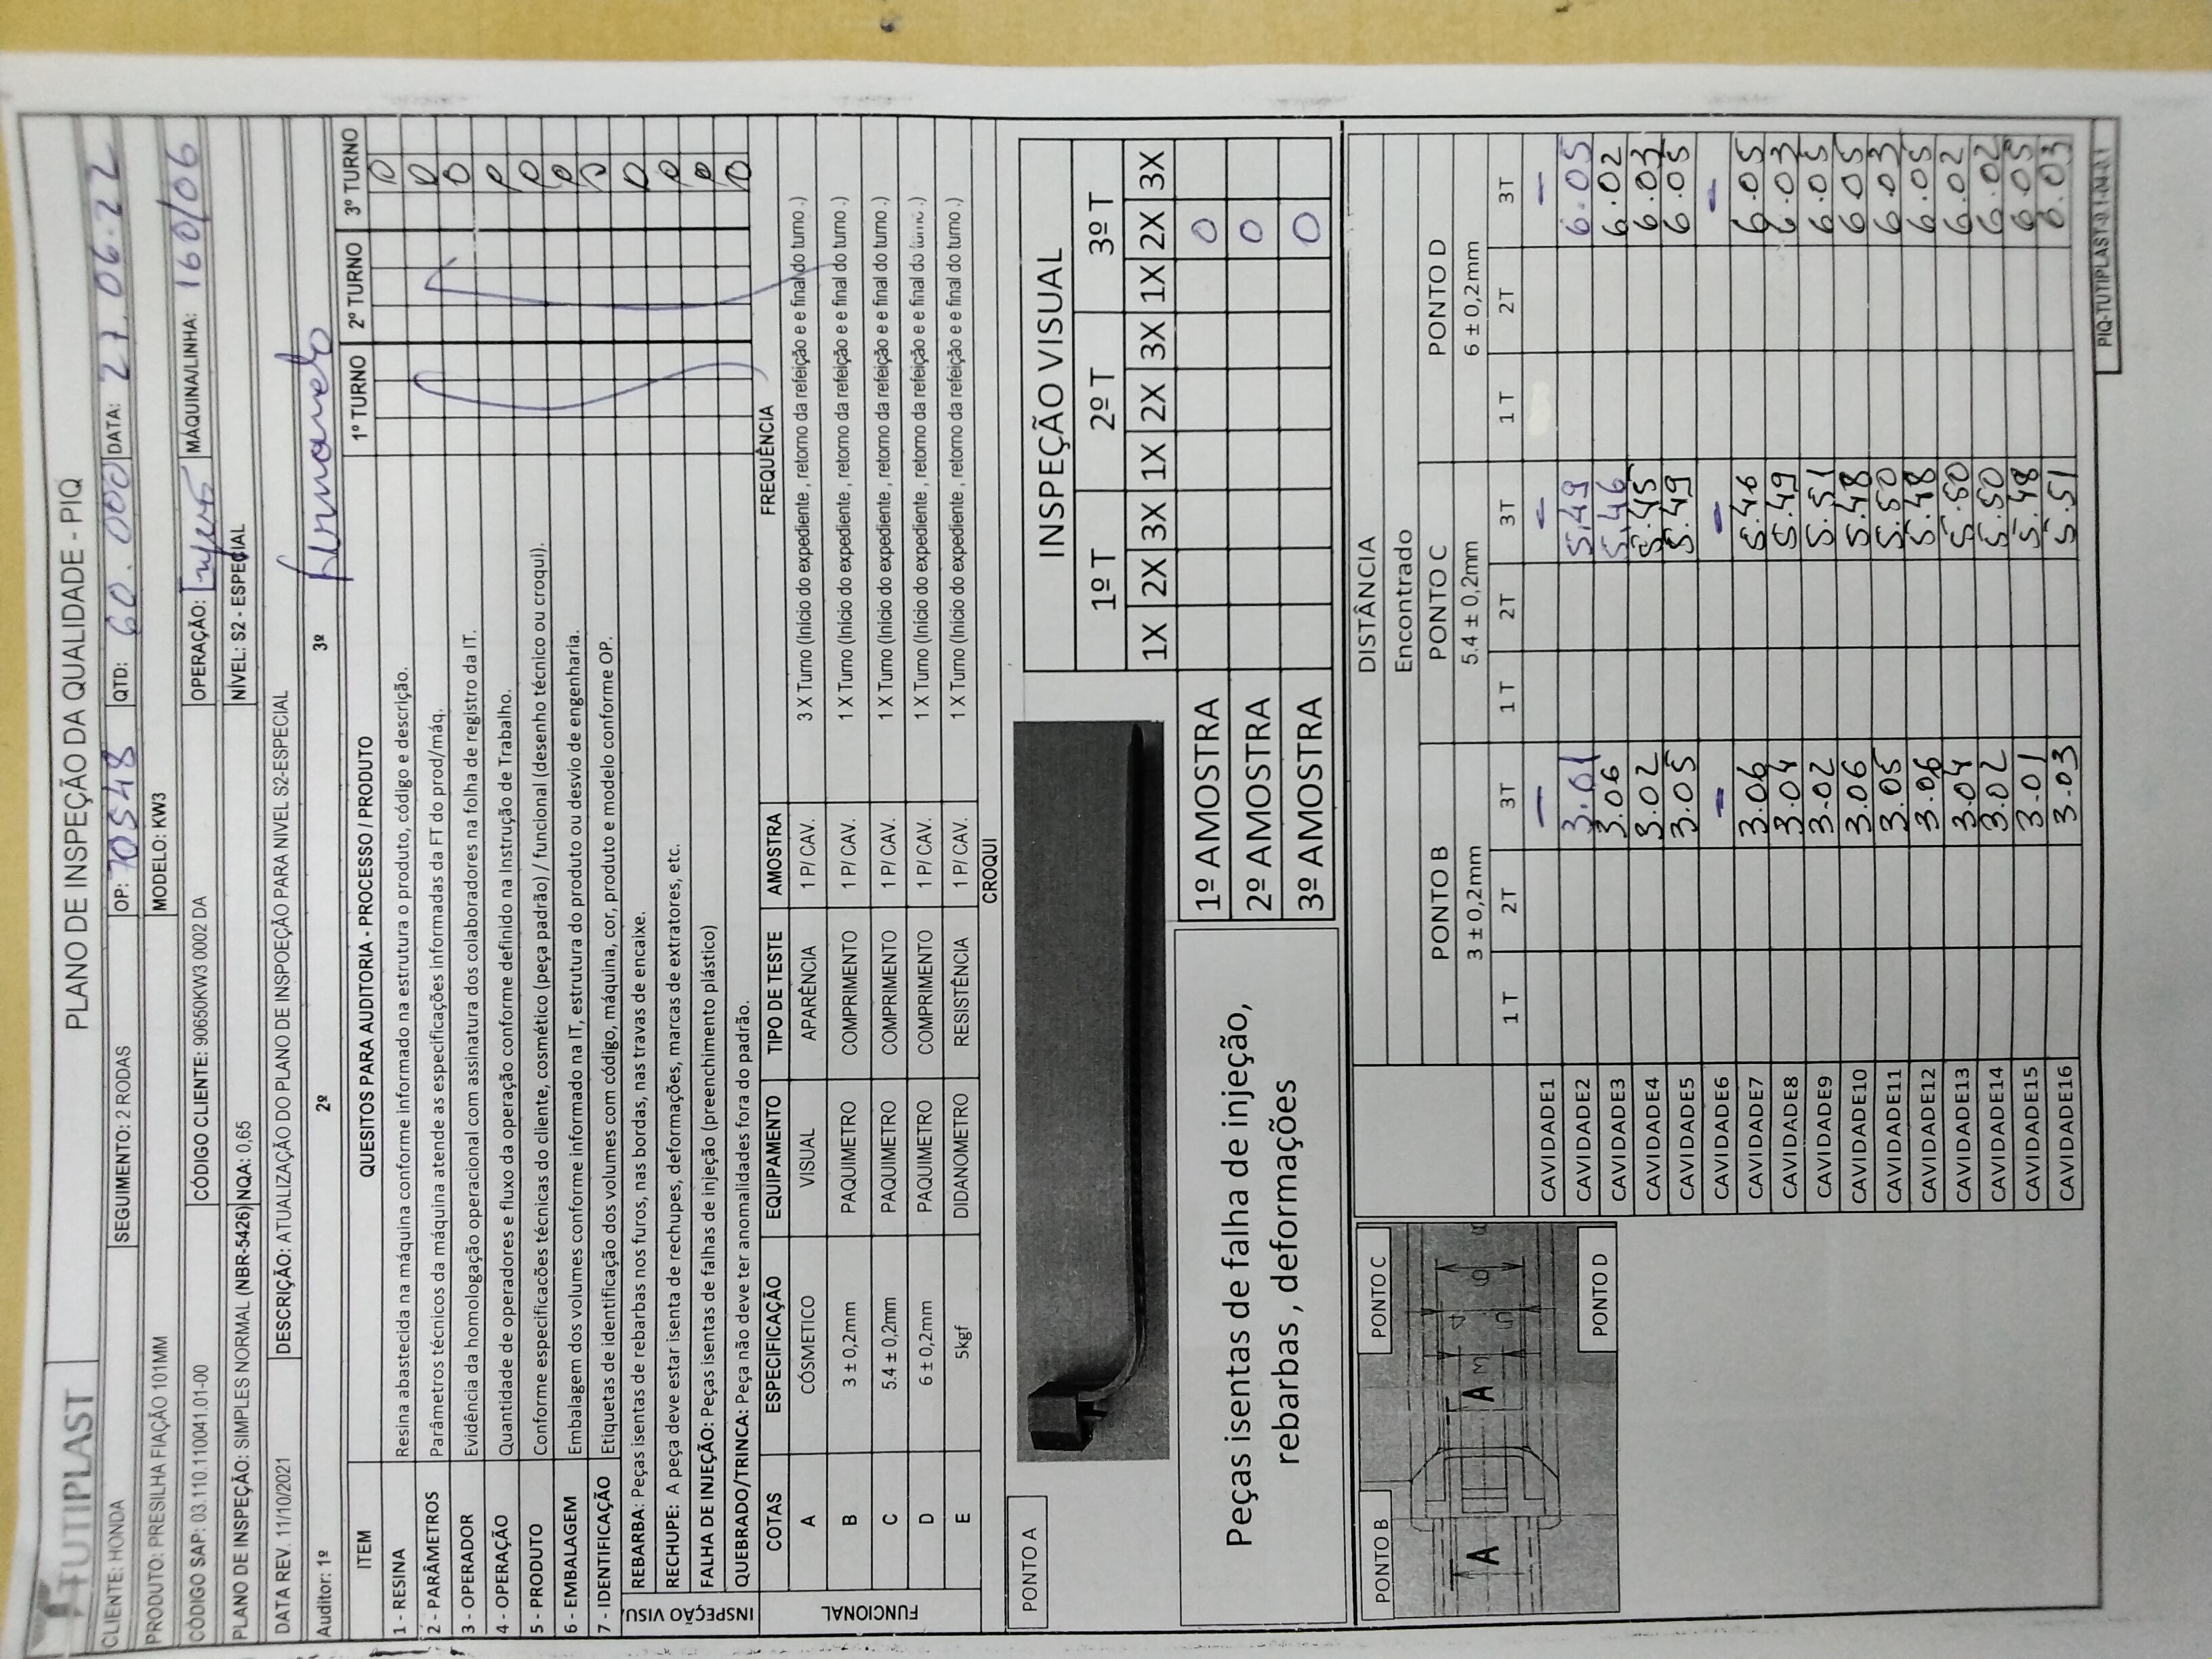 TUTIPLAST
PLANO DE INSPEÇÃO DA QUALIDADE - PIQ
CLIENTE: HONDA SEGUIMENTO: 2 RODAS OP: 70548 QTD: 60.000 DATA: 27.06.22
PRODUTO: PRESILHA FIAÇÃO 101MM MODELO: KW3
CÓDIGO SAP: 03.110.110041.01-00 CÓDIGO CLIENTE: 90650KW3 0002 DA OPERAÇÃO: MÁQUINA/LINHA: 160/06
PLANO DE INSPEÇÃO: SIMPLES NORMAL (NBR-5426) NQA: 0,65 NÍVEL: S2 - ESPECIAL
DATA REV. 11/10/2021 DESCRIÇÃO: ATUALIZAÇÃO DO PLANO DE INSPOEÇÃO PARA NIVEL S2-ESPECIAL
Auditor: 1º 2º 3º
ITEM QUESITOS PARA AUDITORIA - PROCESSO / PRODUTO 1º TURNO 2º TURNO 3º TURNO
1 - RESINA Resina abastecida na máquina conforme informado na estrutura o produto, código e descrição.
2 - PARÂMETROS Parâmetros técnicos da máquina atende as especificações informadas da FT do prod/máq.
3 - OPERADOR Evidência da homologação operacional com assinatura dos colaboradores na folha de registro da IT.
4 - OPERAÇÃO Quantidade de operadores e fluxo da operação conforme definido na Instrução de Trabalho.
5 - PRODUTO Conforme especificacões técnicas do cliente, cosmético (peça padrão) / funcional (desenho técnico ou croqui).
6 - EMBALAGEM Embalagem dos volumes conforme informado na IT, estrutura do produto ou desvio de engenharia.
7 - IDENTIFICAÇÃO Etiquetas de identificação dos volumes com código, máquina, cor, produto e modelo conforme OP.
INSPEÇÃO VISU.
REBARBA: Peças isentas de rebarbas nos furos, nas bordas, nas travas de encaixe.
RECHUPE: A peça deve estar isenta de rechupes, deformações, marcas de extratores, etc.
FALHA DE INJEÇÃO: Peças isentas de falhas de injeção (preenchimento plástico)
QUEBRADO/TRINCA: Peça não deve ter anomalidades fora do padrão.
FUNCIONAL
COTAS ESPECIFICAÇÃO EQUIPAMENTO TIPO DE TESTE AMOSTRA FREQUÊNCIA
A CÓSMETICO VISUAL APARÊNCIA 1 P/ CAV. 3 X Turno (Início do expediente , retorno da refeição e e final do turno .)
B 3 ± 0,2mm PAQUIMETRO COMPRIMENTO 1 P/ CAV. 1 X Turno (Início do expediente , retorno da refeição e e final do turno .)
C 5.4 ± 0,2mm PAQUIMETRO COMPRIMENTO 1 P/ CAV. 1 X Turno (Início do expediente , retorno da refeição e e final do turno .)
D 6 ± 0,2mm PAQUIMETRO COMPRIMENTO 1 P/ CAV. 1 X Turno (Início do expediente , retorno da refeição e e final do turno .)
E 5kgf DIDANOMETRO RESISTÊNCIA 1 P/ CAV. 1 X Turno (Início do expediente , retorno da refeição e e final do turno .)
CROQUI
PONTO A
INSPEÇÃO VISUAL
1º T 2º T 3º T
1X 2X 3X 1X 2X 3X 1X 2X 3X
1º AMOSTRA O
2º AMOSTRA O
3º AMOSTRA O
Peças isentas de falha de injeção,
rebarbas , deformações
PONTO B
PONTO C
PONTO D
A A
DISTÂNCIA
Encontrado
PONTO B PONTO C PONTO D
3 ± 0,2mm 5.4 ± 0,2mm 6 ± 0,2mm
1 T 2T 3T 1 T 2T 3T 1 T 2T 3T
CAVIDADE1 - - -
CAVIDADE2 3.01 5.49 6.05
CAVIDADE3 3.06 5.46 6.02
CAVIDADE4 3.02 5.45 6.03
CAVIDADE5 3.05 5.49 6.05
CAVIDADE6 - - -
CAVIDADE7 3.06 5.46 6.05
CAVIDADE8 3.04 5.49 6.03
CAVIDADE9 3.02 5.51 6.05
CAVIDADE10 3.06 5.48 6.05
CAVIDADE11 3.05 5.50 6.03
CAVIDADE12 3.06 5.48 6.05
CAVIDADE13 3.04 5.50 6.02
CAVIDADE14 3.02 5.50 6.02
CAVIDADE15 3.01 5.48 6.05
CAVIDADE16 3.03 5.51 6.03